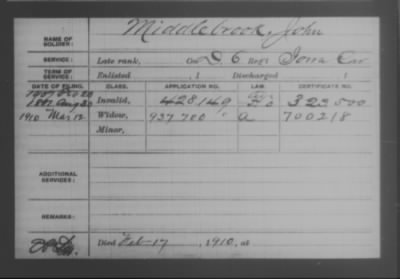 Middlebrook, John
NAME OF SOLDIER:
SERVICE: Late rank, Co. D 6 Reg't Iowa Cav
TERM OF SERVICE: Enlisted , 1 Discharged , 1
DATE OF FILING. CLASS. APPLICATION NO. LAW. CERTIFICATE NO.
1881 Aug 20 Invalid, 428149 323500
1910 Mar 12 Widow, 937780 a 700218
Minor,
ADDITIONAL SERVICES:
REMARKS:
Died Feb-17 , 1910, at